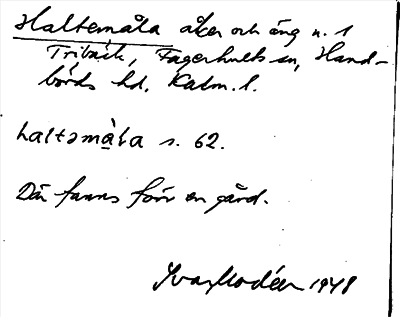 Haltemåla åker och äng n. 1
Triback, Fagerhults sn, Hand-
börds hd. Kalm. l.
haltəmàla s. 62.
Där fanns förr en gård.
Ivar Modéer 1948